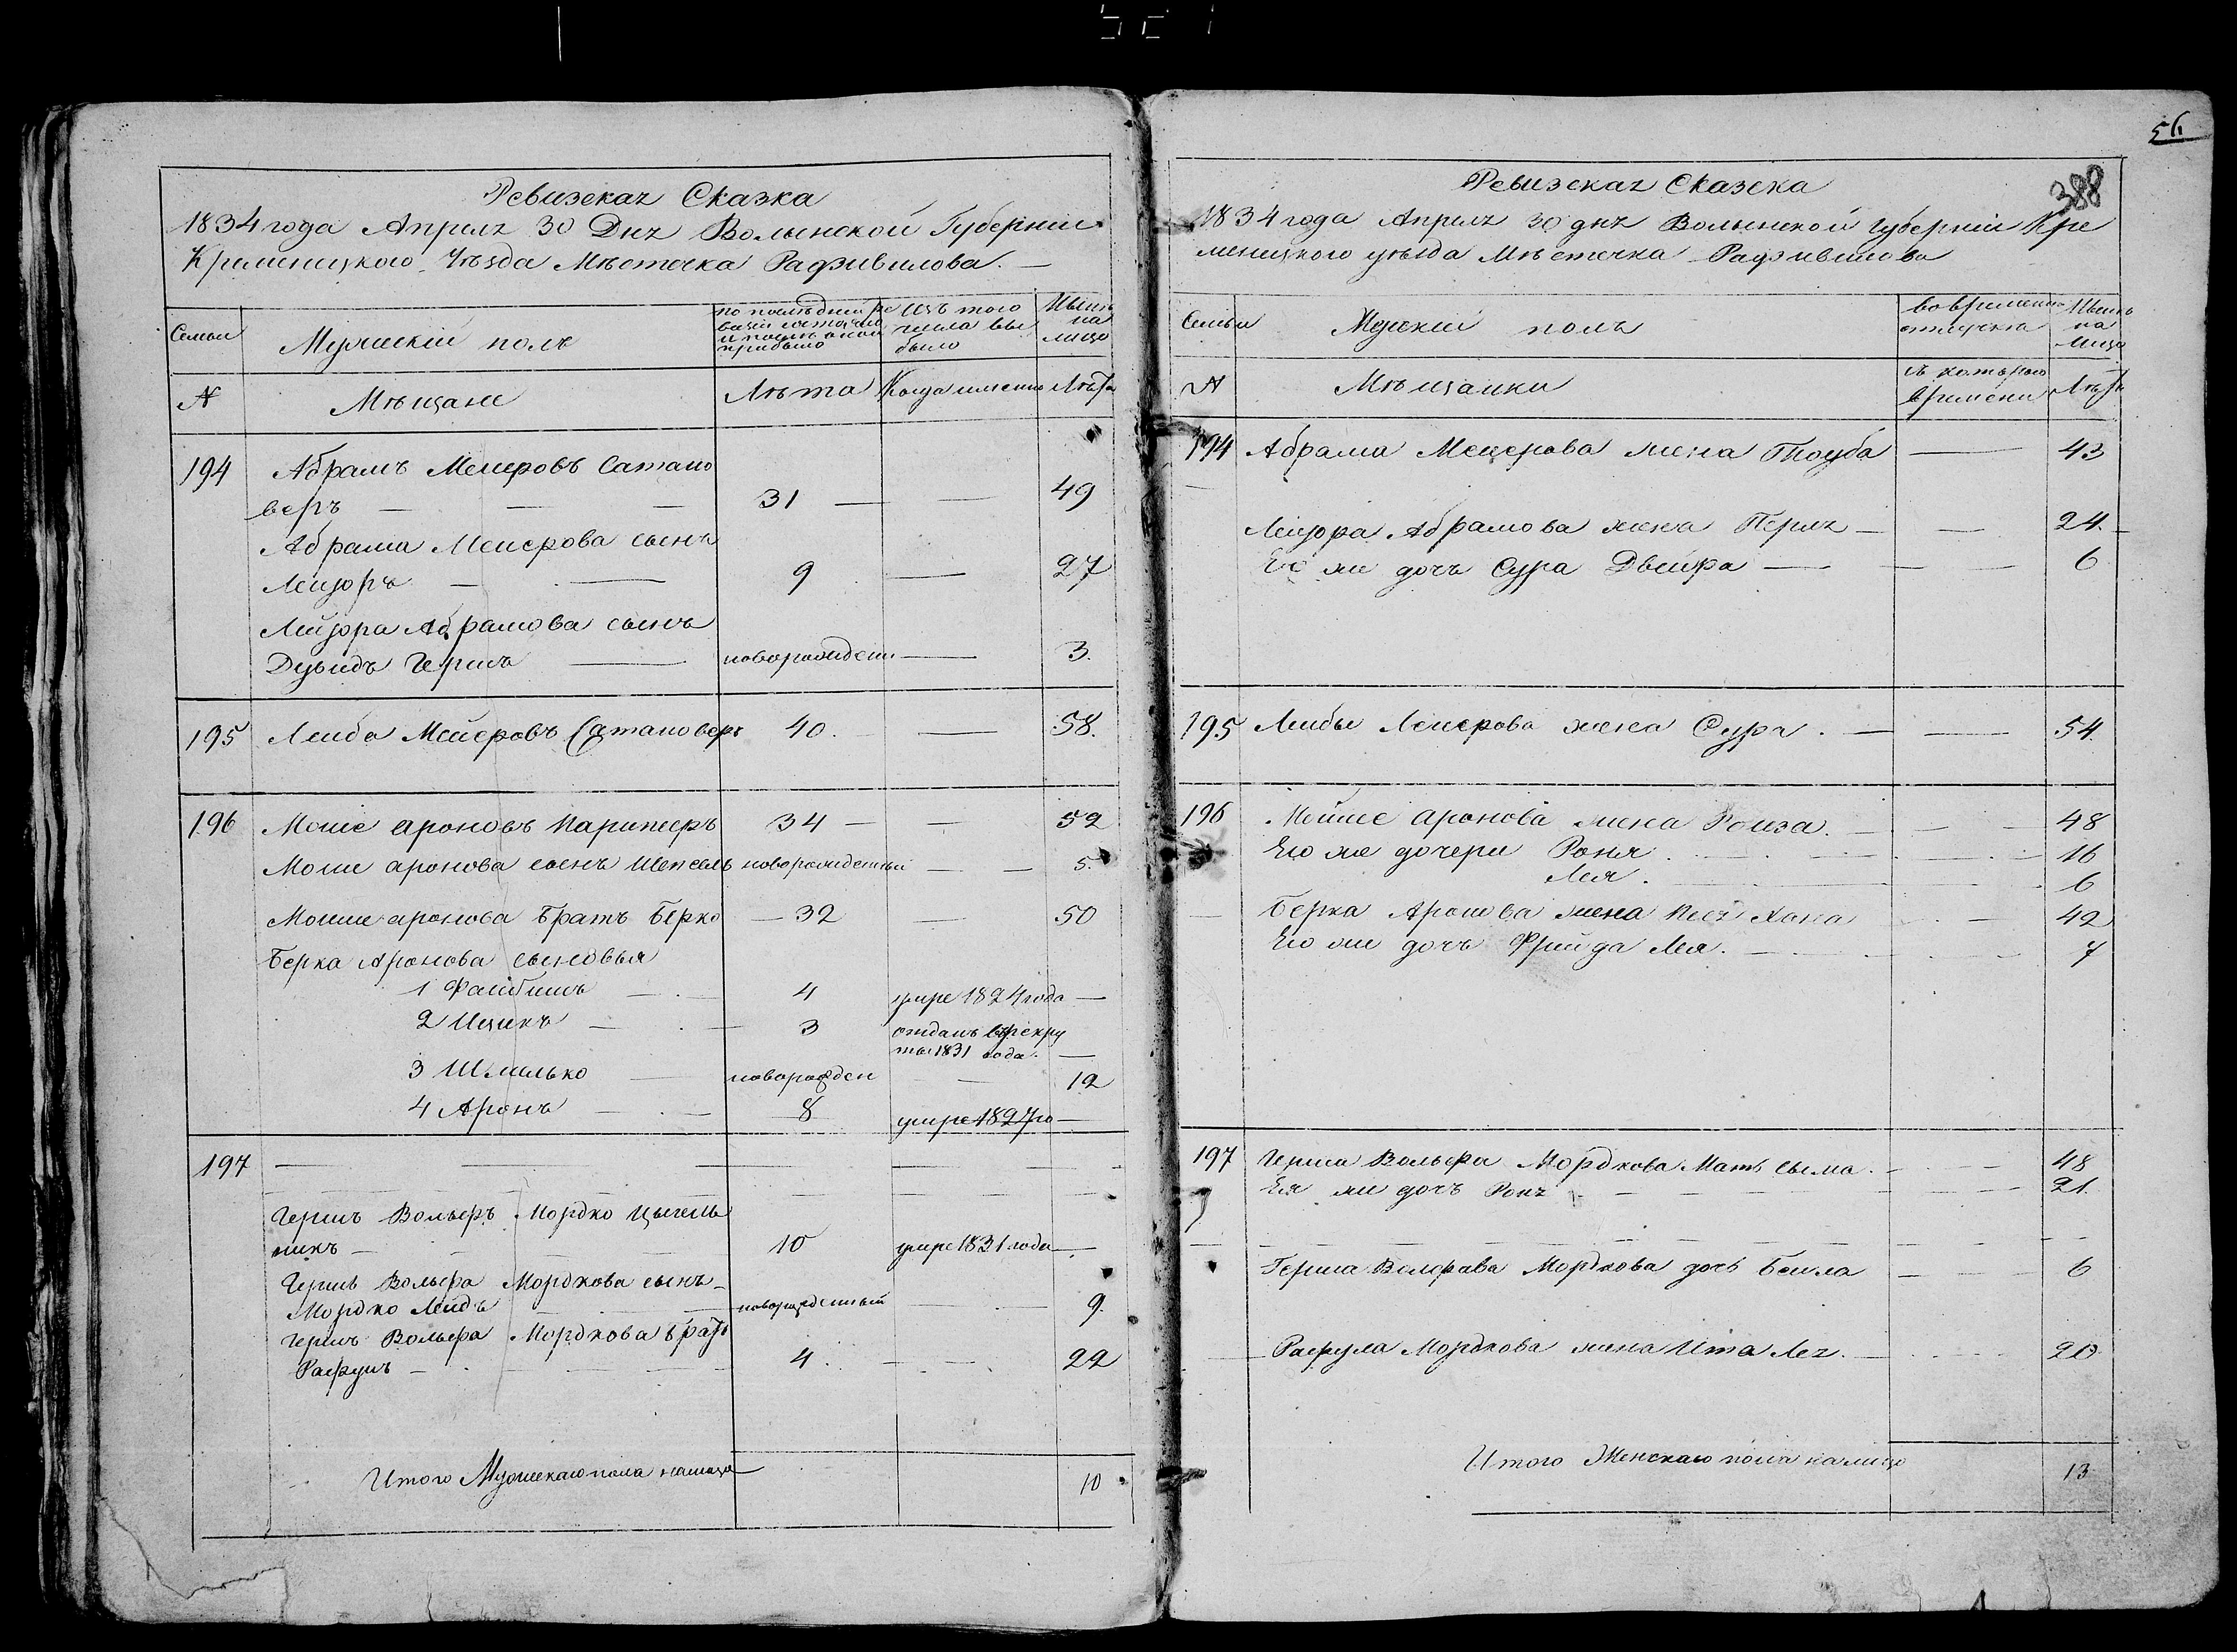 Ревизская Сказка
1834 года Апреля 30 Дня Волынской Губернии
Кременецкого Уѣзда Мѣстечка Радзивилова. —
Семьи
Мужескій полъ
по послѣдней ре
визіи состояло
и после оной
прибыло
Изъ того
числа вы
было
Нынѣ
на
лицо
№
Мѣщане
Лѣта
Когда именно
Лѣта
194
Абрамъ Меиеровъ Сатано
веръ — — — 31 — — 49
Абрама Меиерова сынъ
Лейзоръ — — 9 — 27
Лейзора Абрамова сынъ
Дувидъ Гершъ — новорожденн — 3.
195 Лейба Мейеровъ Сатановеръ 40. — 58.
196 Моше Ароновъ Парипсеръ 34 — — 52
Моше аронова сынъ Шексель новорожденный — — 5.
Мошие аронова братъ Берко — 32 — 50
Берка Аронова сыновья
1 Файбишъ — 4 умре 1824 года —
2 Ицикъ — 3 отданъ въ рекру
ты 1831 года. —
3 Шмилько — новорожден — 12
4 Аронъ — 8 умре 1827 го —
197 — — — — — —
Гершъ Вольфъ Мордко
никъ — 10 умре 1831 года —
Гершъ Вольфа Мордкова сынъ
Мордко Лейбъ — новорожденный — 9.
Гершъ Вольфа Мордкова братъ
Рафулъ — 4. — 22
Итого Мужескаго пола налицо — 10
56
388
Ревизская Сказска
1834 года Апреля 30 дня Волынской губерніи Кре
менецкого уѣзда Мѣстечка Радзивилова
Семьи
Мужскій полъ
во временно
отлучкѣ
Нынѣ
на
лицо
№
Мѣщанки
съ которого
времени
Лѣта
194 Абрама Меиерова жена Тоуба — 43
Лейзора Абрамова жена Перля — — 24. —
Его же дочь Сура Двейра — — — 6
195 Лейбы Меиерова жена Сура. — — 54.
196 Мошие Аронова жена Роиза. — — 48
Его же дочери Роня. — 16
Лея. — 6
Берка Аронова жена Песя Хана — 42
Его же дочь Фрейда Лея. — 7
197 Герша Вольфа Мордкова Мать Сыма. — 48
Ея же дочь Роня — 21.
Герша Волфава Мордкова дочь Беила — 6
Рафула Мордкова жена Ита Лея. — 20
Итого Женскаго пола налицо 13